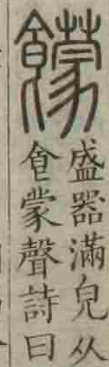 饛
盛器滿皃从
𠊊蒙聲詩曰